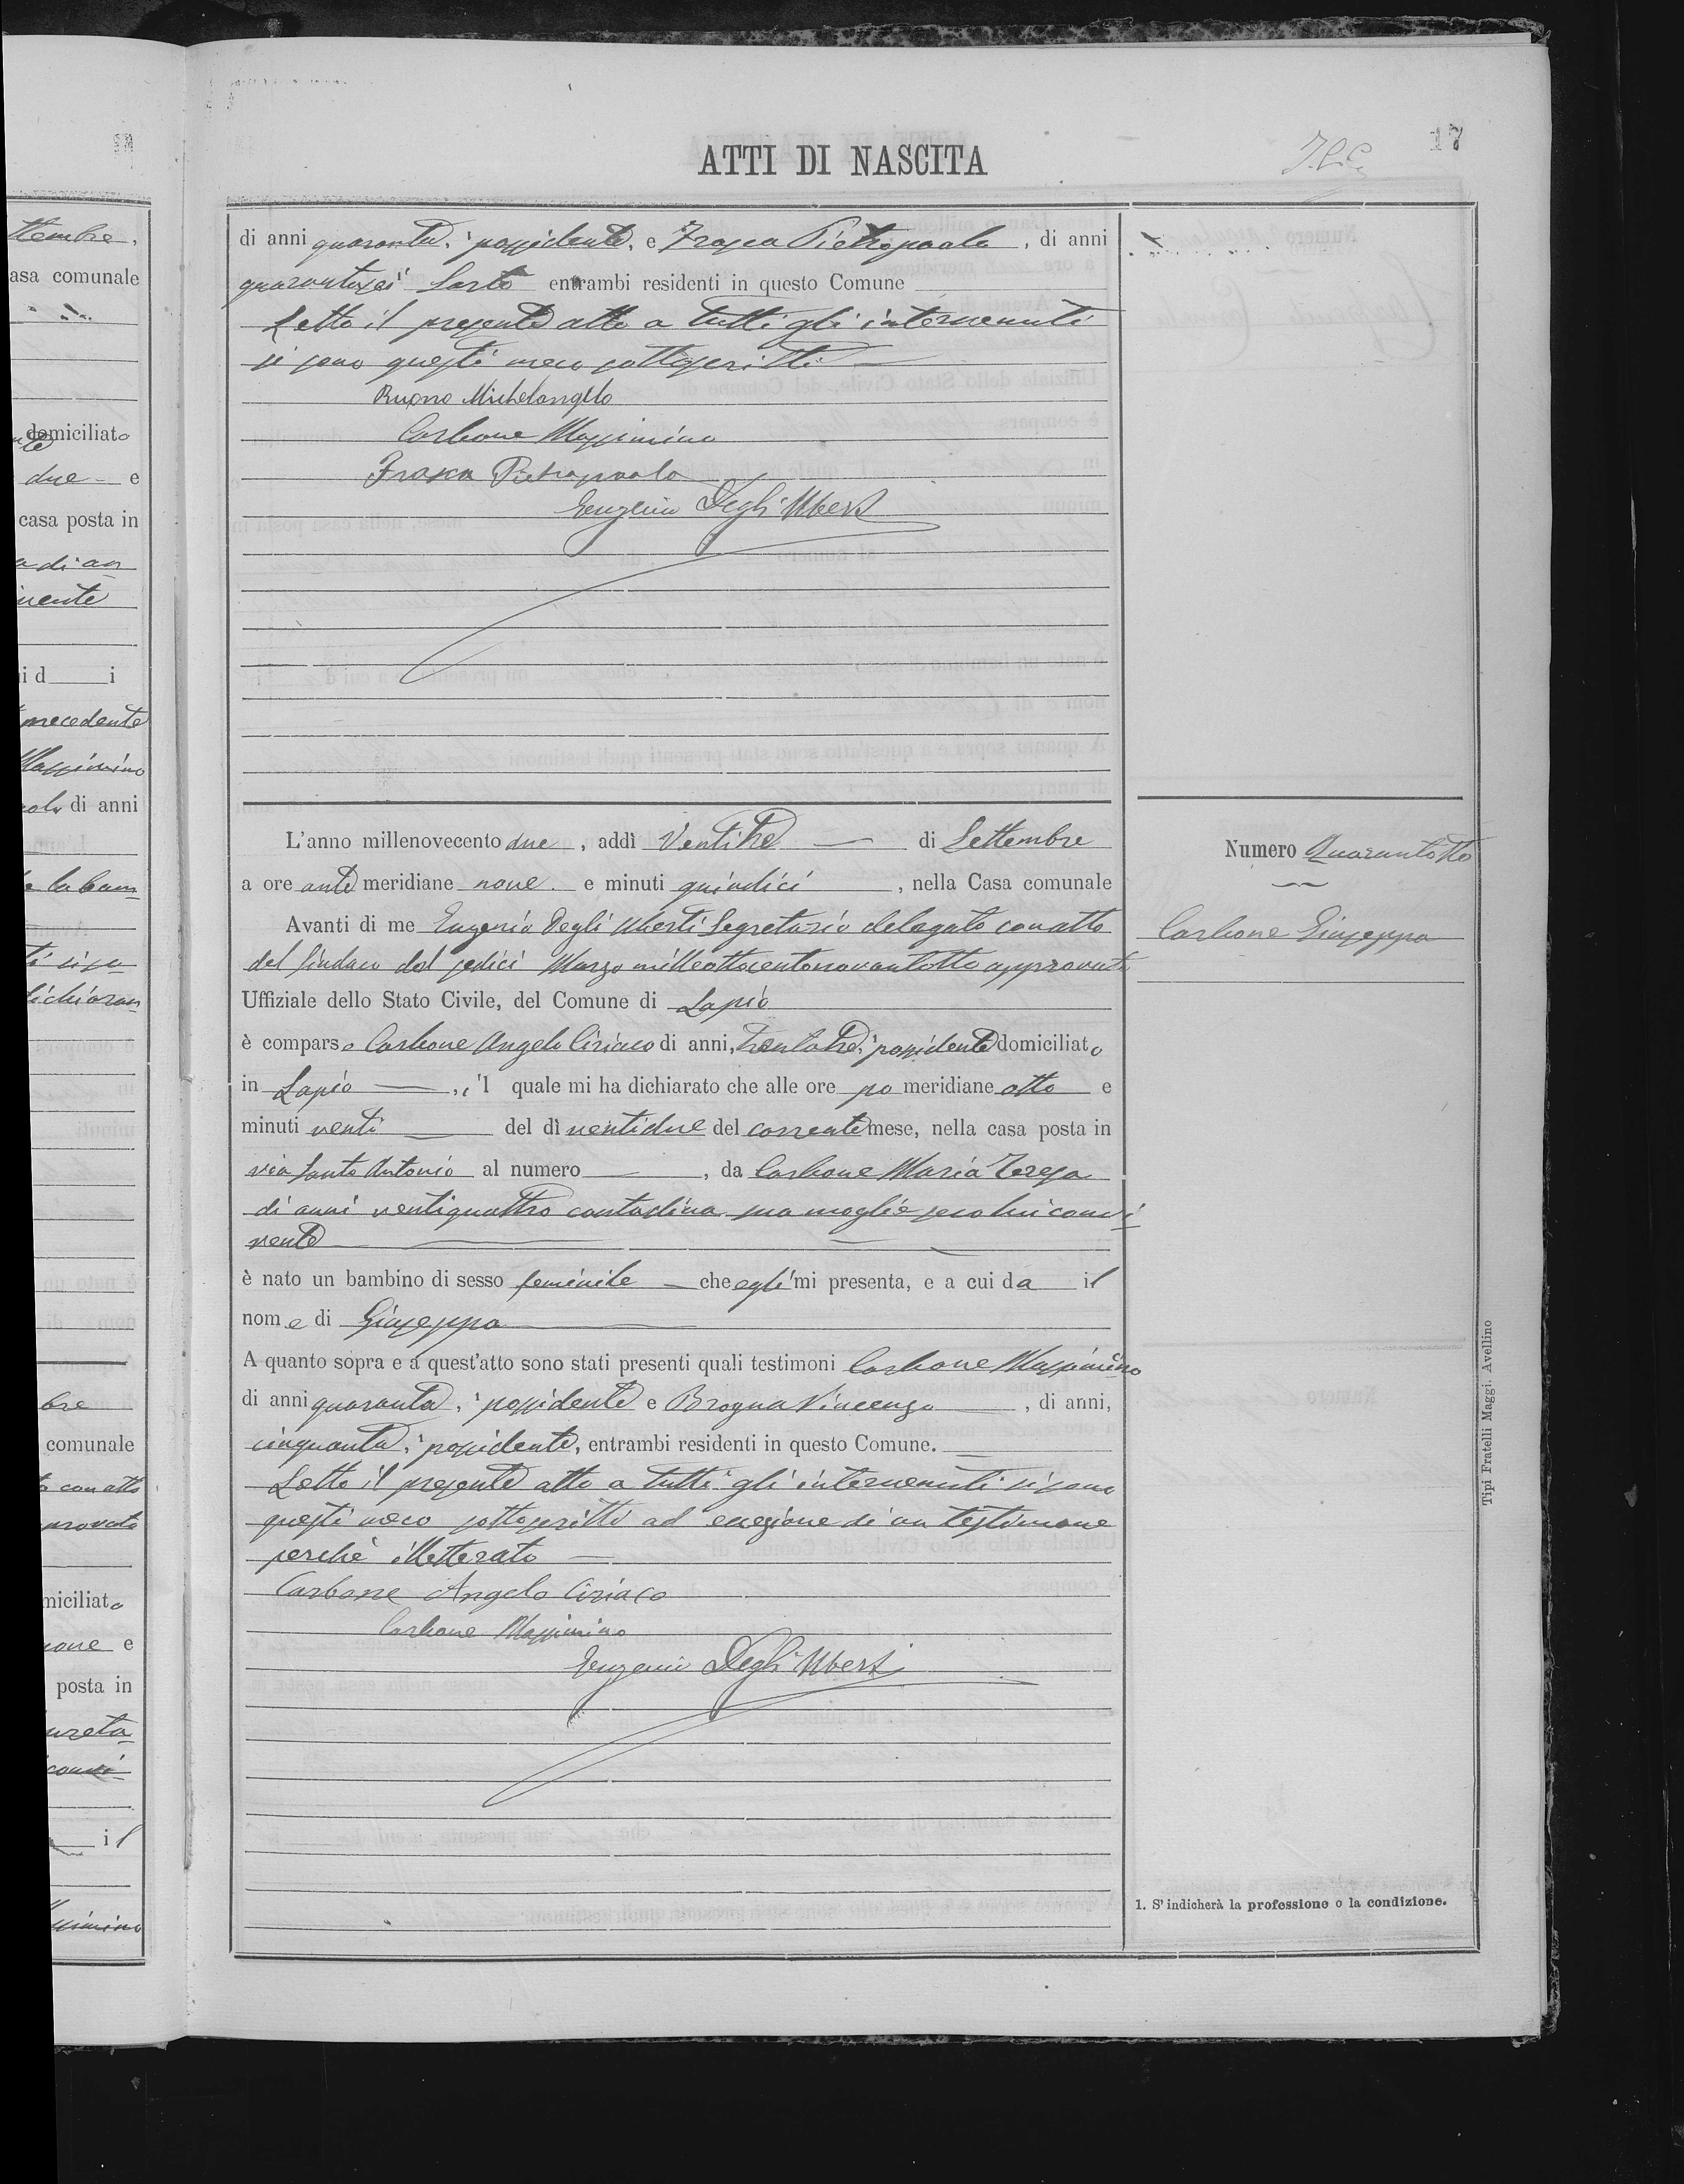 ATTI DI NASCITA
17
di anni quaranta, possidente, e Frasca Pietropaolo, di anni
quarantasei Sarto entrambi residenti in questo Comune
Letto il presente atto a tutti gli intervenuti
si sono questi meco sottoscritti
Ruono Michelangelo
Carbone Massimino
Frasca Pietropaolo
Eugenio Degli Uberti
L'anno millenovecento due, addì Ventitre di Settembre
a ore ante meridiane nove e minuti quindici, nella Casa comunale
Avanti di me Eugenio Degli Uberti Segretario delegato con atto
del Sindaco del sedici Marzo milleottocentonovantotto approvato
Uffiziale dello Stato Civile, del Comune di Lapio
è comparso Carbone Angelo Ciriaco di anni, trentatre, possidente domiciliato
in Lapio, il quale mi ha dichiarato che alle ore po meridiane otto e
minuti venti del dì ventidue del corrente mese, nella casa posta in
via Santo Antonio al numero , da Carbone Maria Teresa
di anni ventiquattro contadina sua moglie seco lui convi-
vente
è nato un bambino di sesso feminile che egli mi presenta, e a cui da il
nome di Giuseppa
A quanto sopra e a quest'atto sono stati presenti quali testimoni Carbone Massimino
di anni quaranta, possidente e Brogna Vincenzo, di anni,
cinquanta, possidente, entrambi residenti in questo Comune.
Letto il presente atto a tutti gli intervenuti si sono
questi meco sottoscritti ad eccezione di un testimone
perchè illetterato
Carbone Angelo Ciriaco
Carbone Massimino
Eugenio Degli Uberti
Numero Quarantotto
Carbone Giuseppa
1. S'indicherà la professione o la condizione.
Tipi Fratelli Maggi. Avellino
ttembre,
asa comunale
domiciliato
due e
casa posta in
a di an
vente
i d i
precedente
Massimino
di anni
la bam-
dichiaran-
bre
comunale
con atto
provato
miciliato
nove e
posta in
convi-
il
ssimino